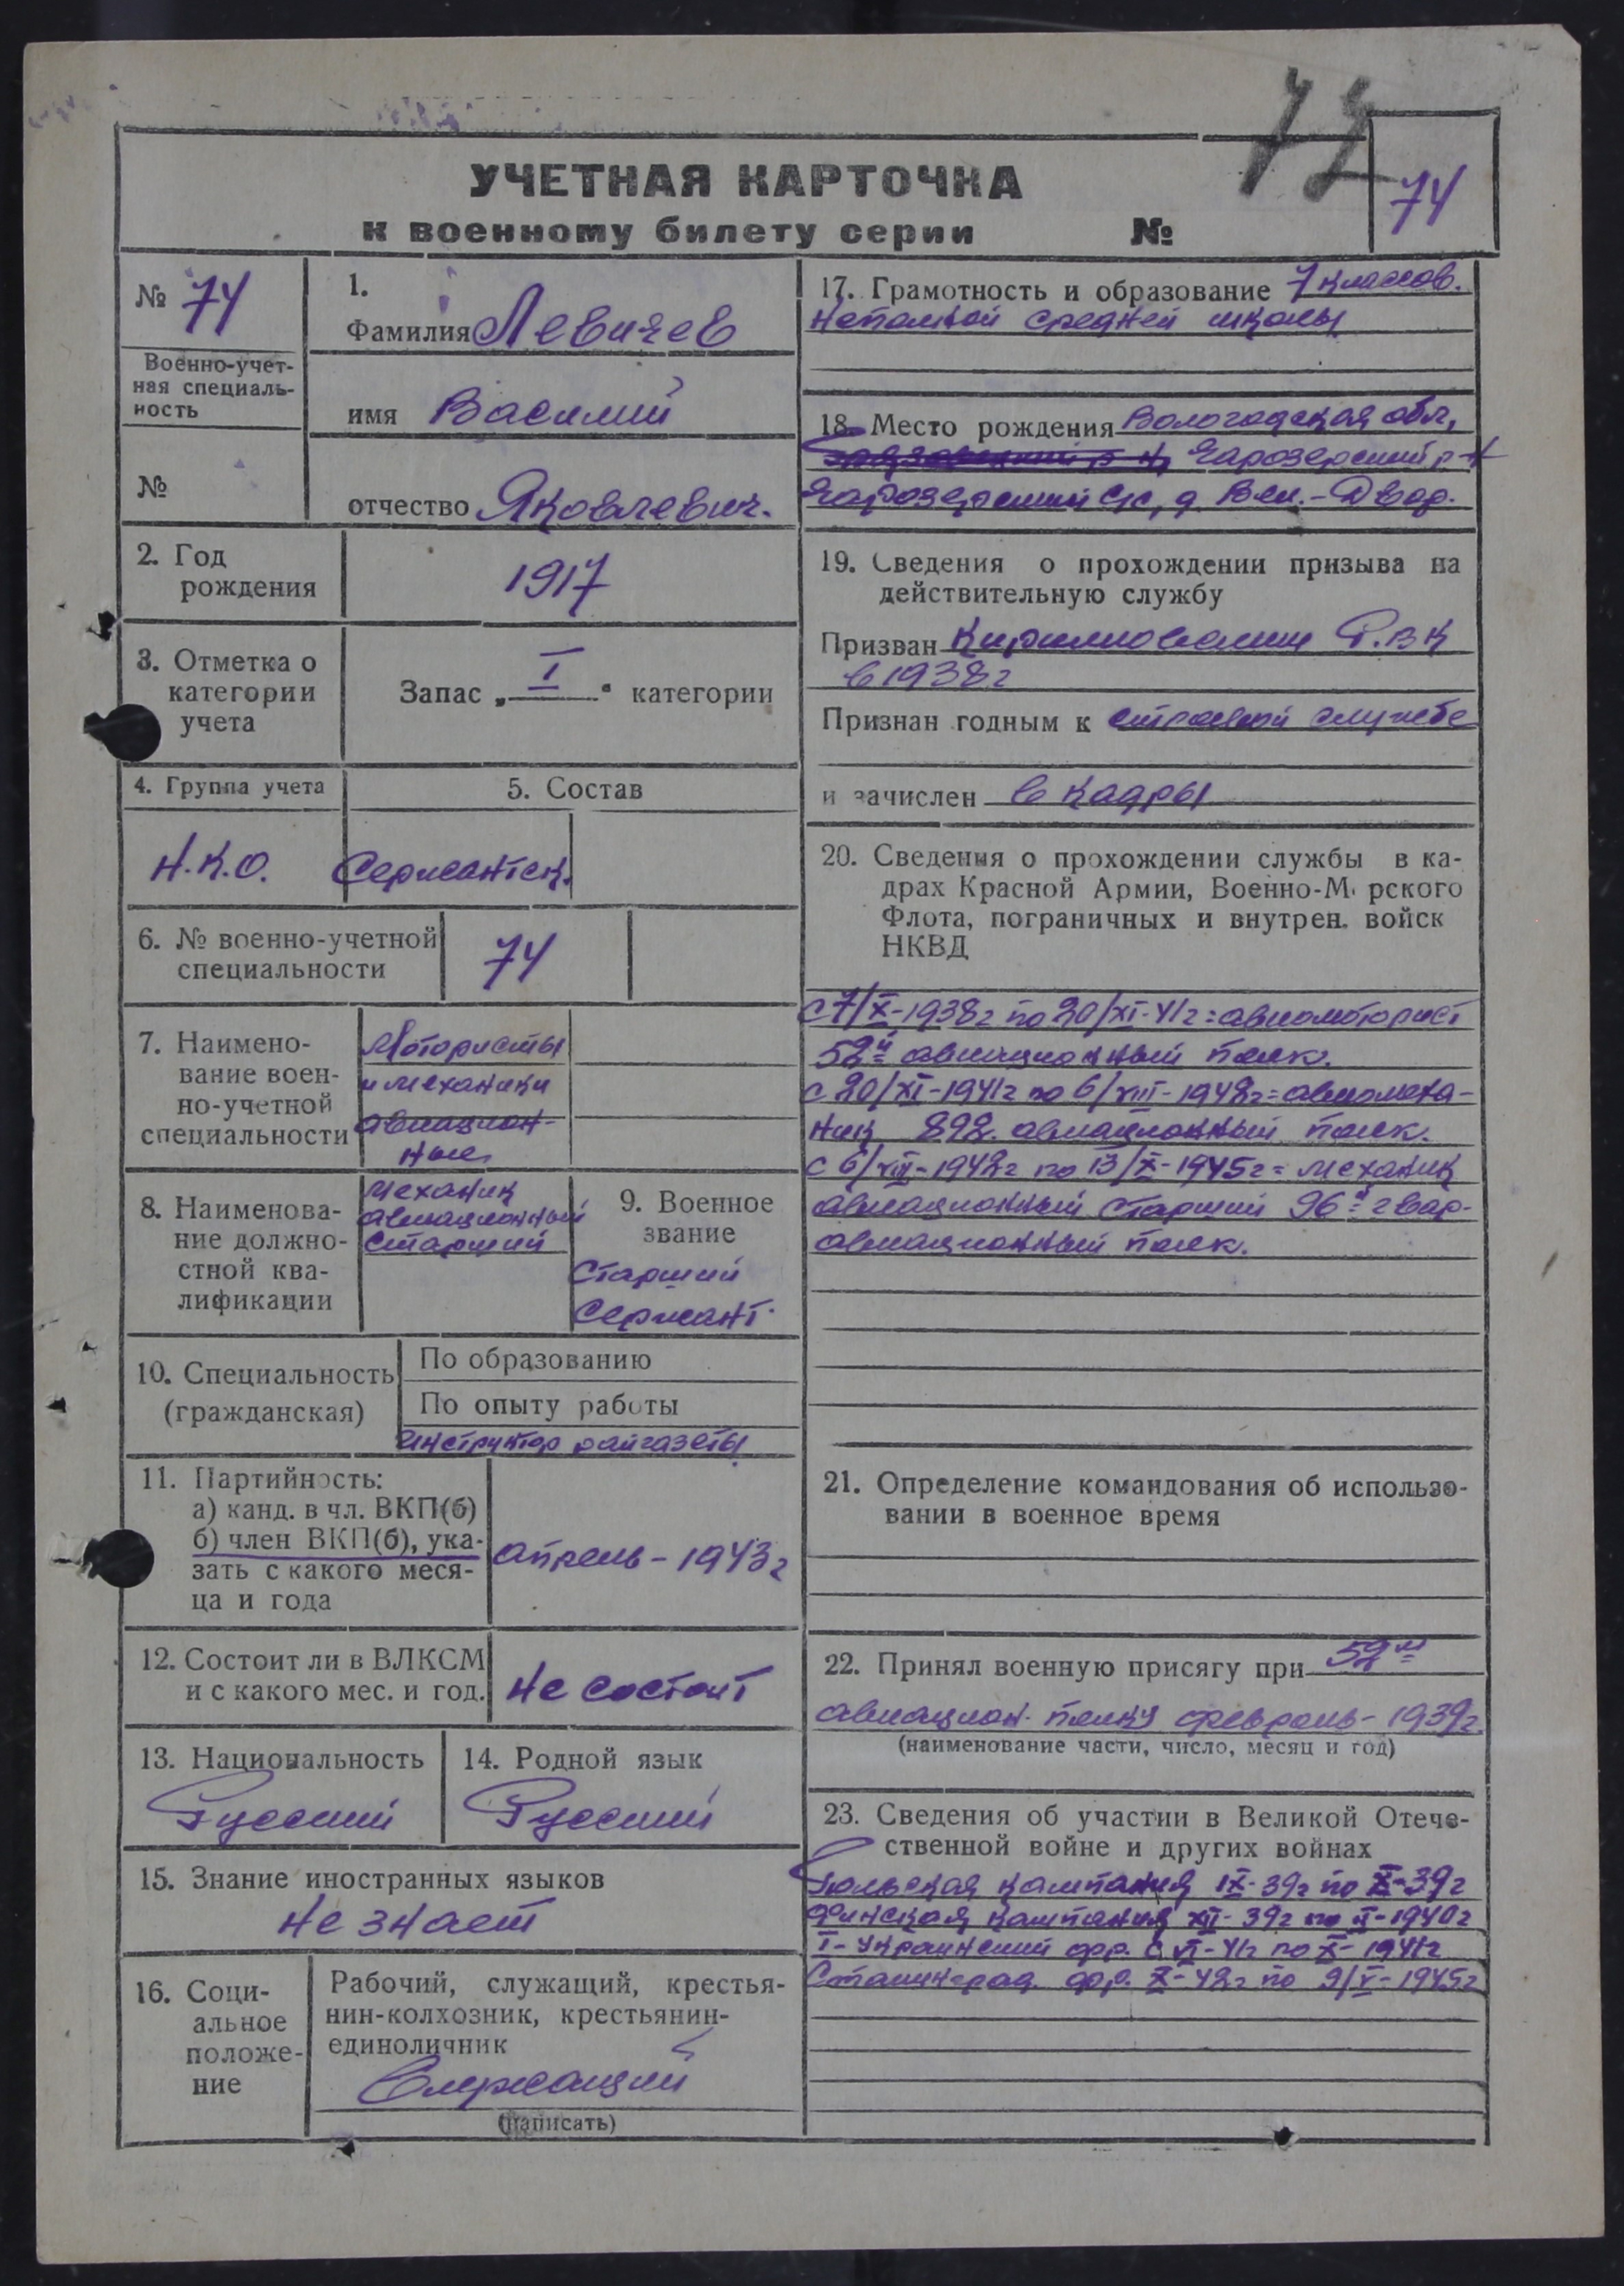 74
УЧЕТНАЯ КАРТОЧКА
к военному билету серии №
74
№ 74
Военно-учет-
ная специаль-
ность
№
1.
Фамилия Левичев
имя Василий
отчество Яковлевич.
2. Год
рождения
1917
3. Отметка о
категории
учета
Запас „ I " категории
4. Группа учета
Н.К.О.
5. Состав
Сержантск.
6. № военно-учетной
специальности
74
7. Наимено-
вание воен-
но-учетной
специальности
Мотористы
и механики
авиацион-
ные
8. Наименова-
ние должно-
стной ква-
лификации
механик
авиационный
старший
9. Военное
звание
Старший
Сержант.
10. Специальность
(гражданская)
По образованию
По опыту работы
инструктор райгазеты
11. Партийность:
а) канд. в чл. ВКП(б)
б) член ВКП(б), ука-
зать с какого меся-
ца и года
апрель - 1943г
12. Состоит ли в ВЛКСМ
и с какого мес. и год.
Не состоит
13. Национальность
Русский
14. Родной язык
Русский
15. Знание иностранных языков
Не знает
16. Соци-
альное
положе-
ние
Рабочий, служащий, крестья-
нин-колхозник, крестьянин-
единоличник
Служащий
(написать)
17. Грамотность и образование 7 классов.
Неполной средней школы
18. Место рождения Вологодская обл,
Чарозерский р-н
Чарозерский с/с, д. Вел.-Двор.
19. Сведения о прохождении призыва на
действительную службу
Призван Кирилловским Р.В К
в 1938г
Признан годным к строевой службе
и зачислен в кадры
20. Сведения о прохождении службы в ка-
драх Красной Армии, Военно-М рского
Флота, пограничных и внутрен. войск
НКВД
с 7/X-1938г по 20/XI-41г = авиамоторист
52й авиационный полк.
с 20/XI-1941г по 6/VIII-1942г = авиамеха-
ник 892. авиационный полк.
с 6/VIII-1942г по 13/X-1945г = механик
авиационный старший 96й гвар-
авиационный полк.
21. Определение командования об использо-
вании в военное время
22. Принял военную присягу при 52м
авиацион. полку февраль - 1939г.
(наименование части, число, месяц и год)
23. Сведения об участии в Великой Отече-
ственной войне и других войнах
Польская кампания IX-39г по X-39г
Финская кампания XII-39г по II-1940г
I-Украинский фр. с VI-41г по X-1941г
Сталинград. фр. X-42г по 9/V-1945г